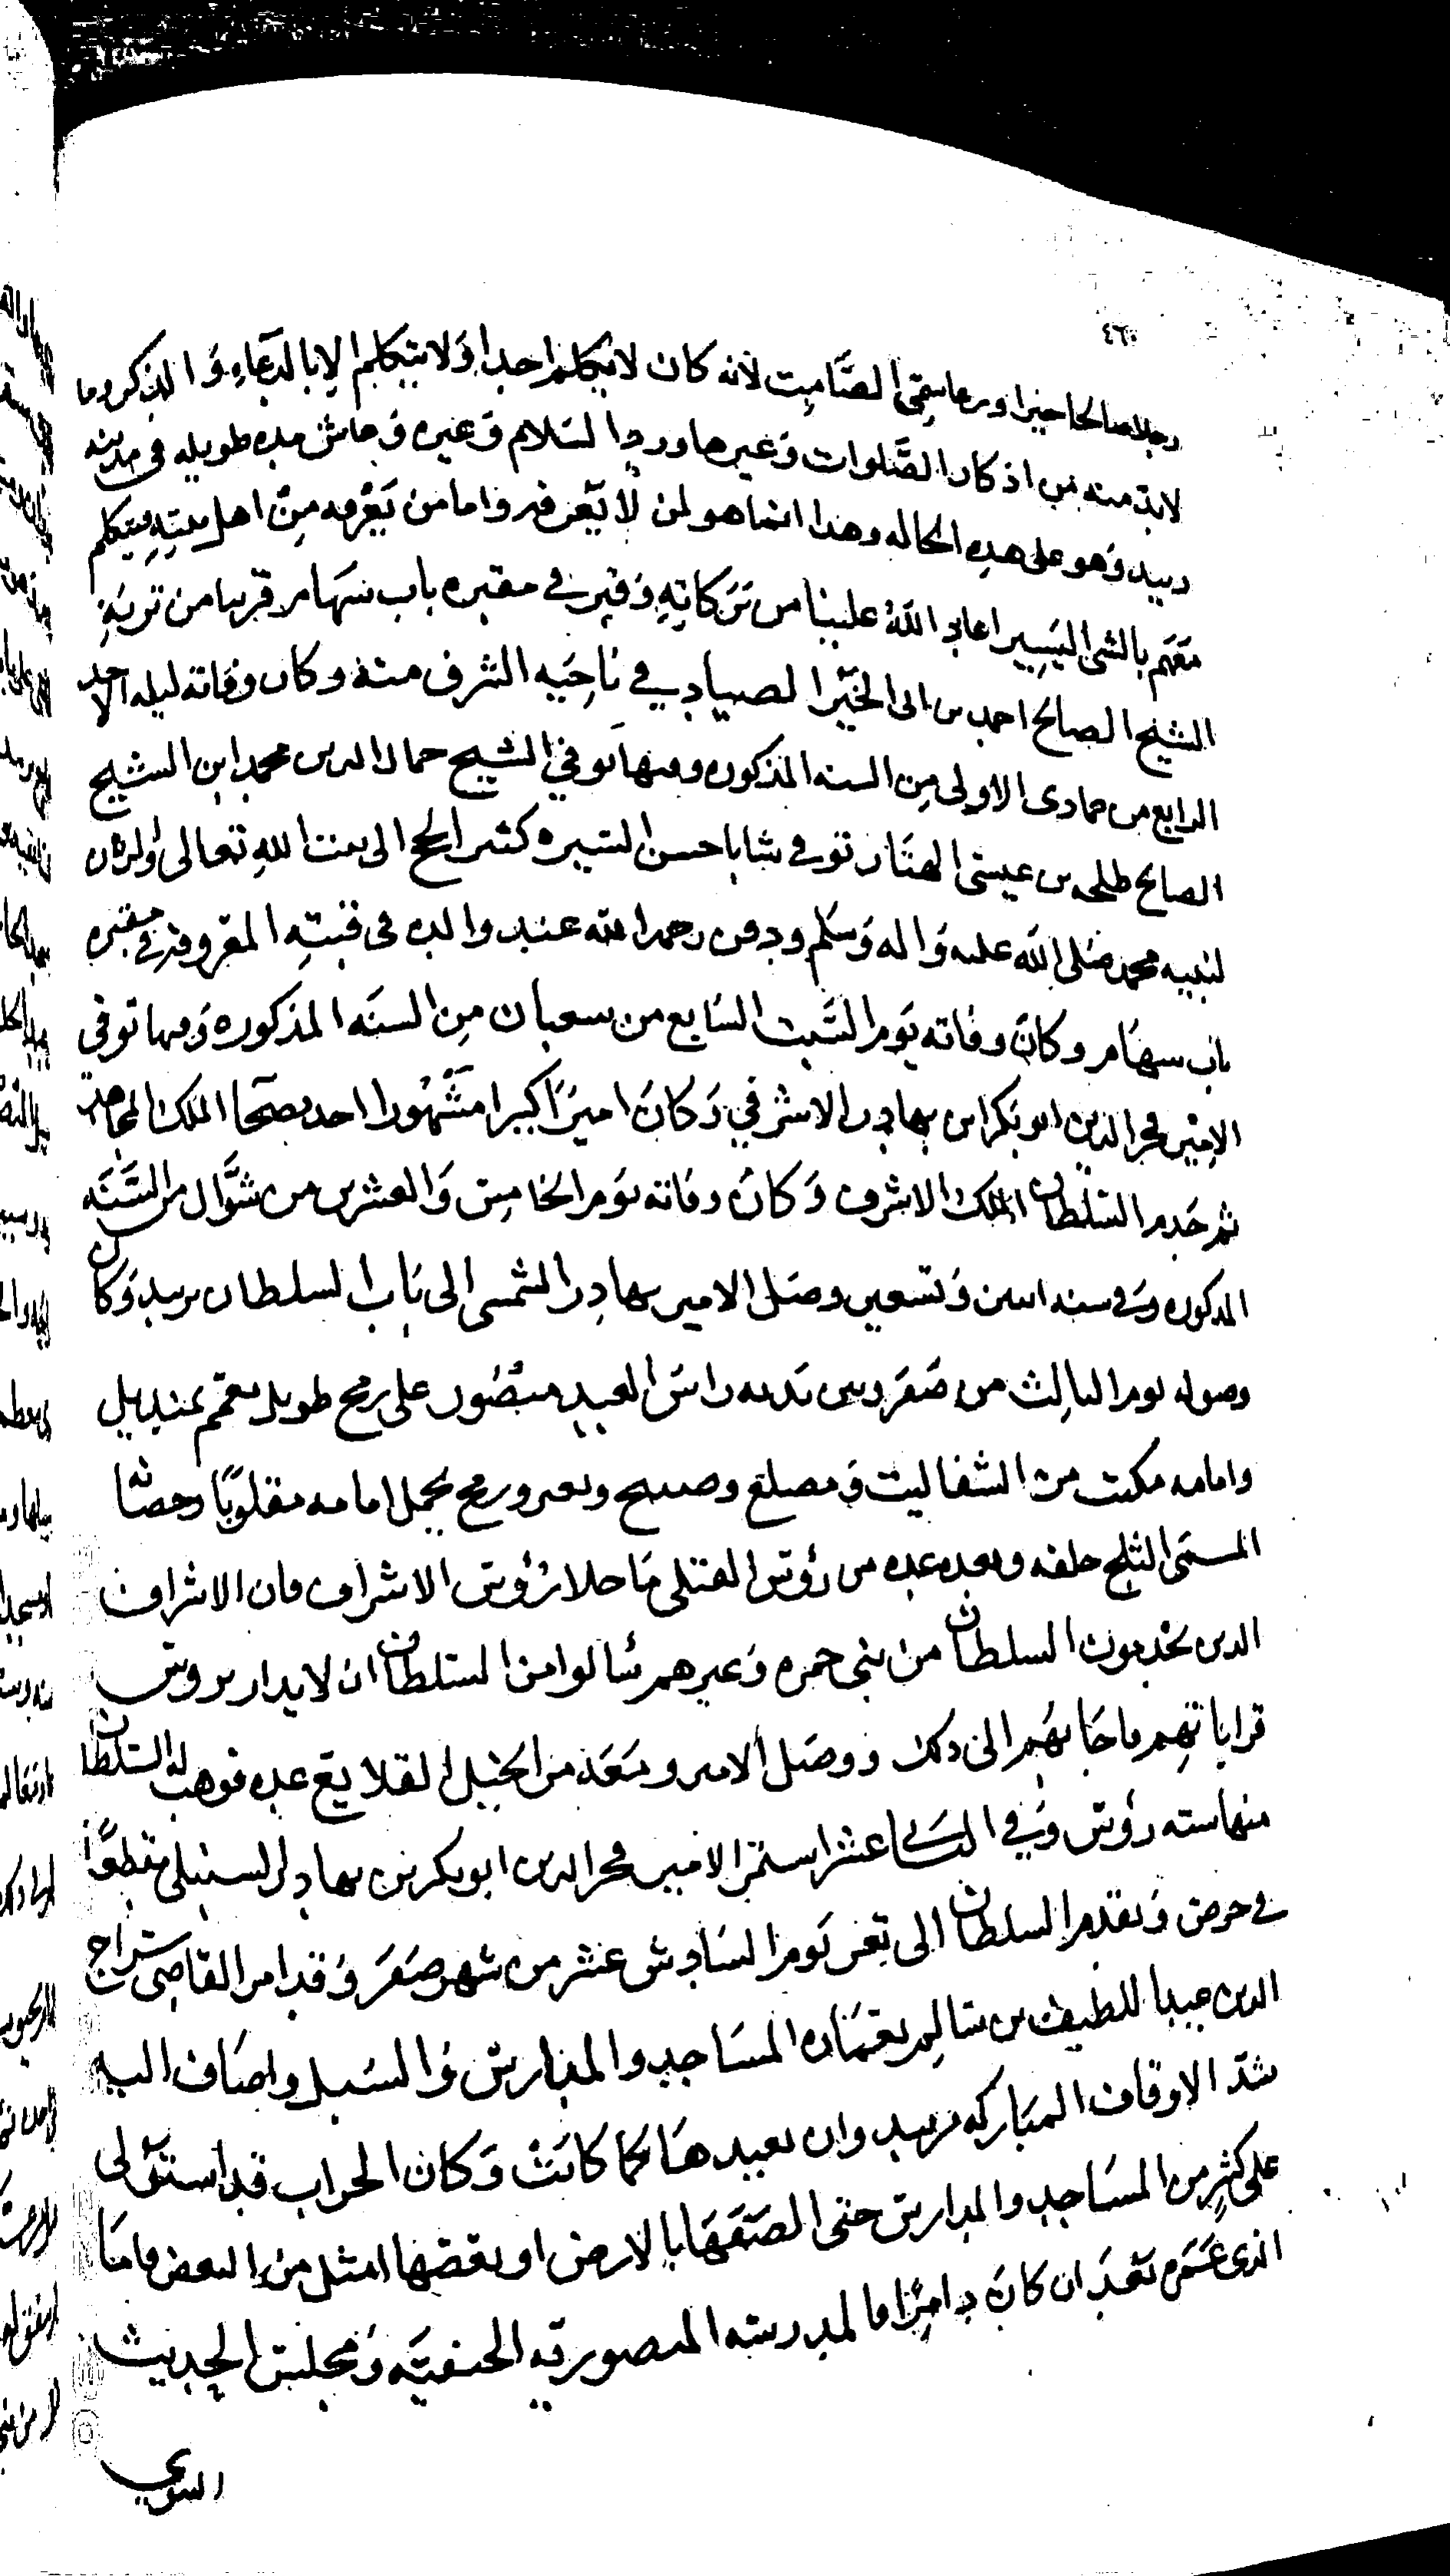 ٤٦٠
رجلا صالحا خيرا ورعا سمى الصَّامِت لأنه كان لا يكلم احدا وَلا يتكلم الا بالدعاءِ وَا لذكر وما
لابد منه من اذكار الصَّلوات وَغيرها ورد السَّلام وَغيره وَعاش مده طويله في مدينه
زبيد وَهو على هذه الحاله وهذا انما هو لمن لا يَعرفه واما من يَعْرفه مِنْ اهل بيتِهِ فيتكلم
مَعَهم بالشي اليَسِير اعاد اللهُ علينا من بَرَكاتِهِ وَقبر في مقبره باب سَهَام قريبا من تربَةِ
الشيخ الصالح احمد بن ابى الخيْر الصياد في نَاحِيَه الشرف منهَ وكان وفاته ليله الاحد
الرابع من جمادى الاولى مِن السنه المذكوره وفيها تَوفي الشيخ جمال الدين محمد ابن الشيخ
الصالح طلحه بن عيسى الهتَار توفي شابا حسن السِيره كثير الحج الى بيت اللهِ تعالى والزيارة
لنبيه محمد صَلى الله عليه وَاله وَسَلم ودفن رحمه الله عند والده في قبتِهِ المعروفه في مقبره
باب سهَام وكانَ وفاته يَوم السَّبت السَّابع من شعبان مِن السنَه المذكوره وَفيها توفي
الامير فخر الدين ابو بَكر ابن بهادر الاشرفي وَكانَ اميرًا كبيرا مَشْهُورا احد صحَابة الملك المجاهد
ثم خَدم السُلطان الملك الاشرف وَكانَ وفاته يَوم الخامِس وَالعشرين من شوَّال من السَّنَه
المذكوره وَفي سنه اثنين وَتسعين وصَل الامير بهادِر الشمسى الى بَاب السلطان بزبيد وَكان
وصوله يوم الثالِث من صَفَر وبين يَديه راسُ العبد منصُور على رمح طويل معمم بمنديل
وامامه مكتب من الشفاليت وَمصلع وصبيح وبعير ورمح يحمل امامه مقلوبًا وحصانه
المسمى الثلج خلفه وبعده عده من رؤس القتلى مَا خلا رُؤس الاشراف فان الاشراف
الذين يخدمون السلطان من بنى حمزه وَغيرهم سَالوا من السلطان ان لا يدار بروس
قراباتهم فاجابهُم الى ذلك ووصَل الامير ومَعَه من الخيل القلايَع عده فوهب له السُلطان
منها سته رؤس وَفي الثاني عشر استمر الامير فخر الدين ابو بكر بن بهادر السنبلى مقطعًا
في حرض وَتقدم السلطان الى تعز يَوم السَادس عشر من شهر صَفَر وَقد امر القاضى سراج
الدين عبد اللطيف بن سَالِم بعمَارَه المسَاجد والمدارس وَالسُبل واضَاف اليه
شدّ الاوقاف المبَاركه بزبيد وان يعيدهَا كما كانَتْ وَكان الخراب قد استَولى
على كثيرٍ من المسَاجد والمدارس حتى الصَقَهَا بالارض او بعضها امثل من البعض فامَا
الذى عَمَره بَعْدَ ان كانَ دامِرًا فالمدرسه المنصوريه الحنفيَه وَمجلس الحديث
النبوي